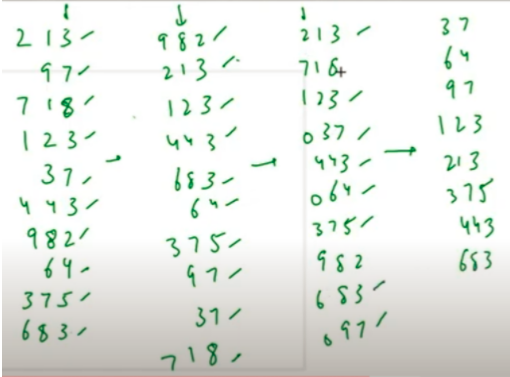 213
97
718
123
37
443
982
64
375
683
982
213
123
443
683
64
375
97
37
718
213
718
123
037
443
064
375
982
683
097
37
64
97
123
213
375
443
683